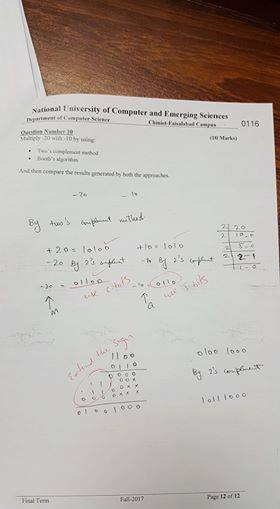 National University of Computer and Emerging Sciences
Department of Computer Science Chiniot-Faisalabad Campus 0116
Question Number 10 (10 Marks)
Multiply -20 with -10 by using:
• Two's complement method
• Booth's algorithm
And then compare the results generated by both the approaches.
-20 -10
By two's complment method
+20 = 10100 +10 = 1010
-20 By 2's complment -10 By 2's complment
-20 = 01100 -10 = 0110
use 6-bits use 5-bits
M Q
2 20
2 10-0
2 5-0
2 2-1
1-0
Extend the sign
1100
0110
0000
0100 1000
By 2's complement
10111000
01001000
Final Term Fall-2017 Page 12 of 12